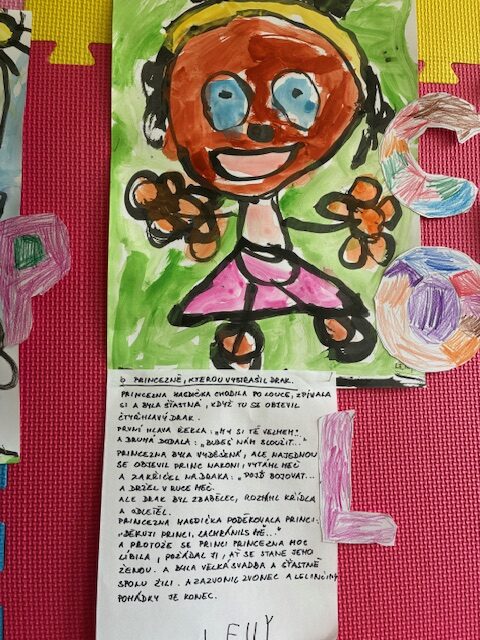 O PRINCEZNĚ, KTEROU VYSTRAŠIL DRAK.
PRINCEZNA MAGDIČKA CHODILA PO LOUCE, ZPÍVALA
SI A BYLA ŠŤASTNÁ, KDYŽ TU SE OBJEVIL
ČTYŘHLAVÝ DRAK.
PRVNÍ HLAVA ŘEKLA: „MY SI TĚ VEZMEM"
A DRUHÁ DODALA: „BUDEŠ NÁM SLOUŽIT..."
PRINCEZNA BYLA VYDĚŠENÁ, ALE NAJEDNOU
SE OBJEVIL PRINC NAKONI, VYTÁHL MEČ
A ZAKŘIČEL NA DRAKA: „POJĎ BOJOVAT...
A DRŽEL V RUCE MEČ.
ALE DRAK BYL ZBABĚLEC, ROZTÁHL KŘÍDLA
A ODLETĚL.
PRINCEZNA MAGDIČKA PODĚKOVALA PRINCI:
„DĚKUJI PRINCI, ZACHRÁNILS MĚ..."
A PROTOŽE SE PRINCI PRINCEZNA MOC
LÍBILA, POŽÁDAL JI, AŤ SE STANE JEHO
ŽENOU. A BYLA VELKÁ SVADBA A ŠŤASTNĚ
SPOLU ŽILI. A ZAZVONIL ZVONEC A LELINČINY
POHÁDKY JE KONEC.
P
C
O
L